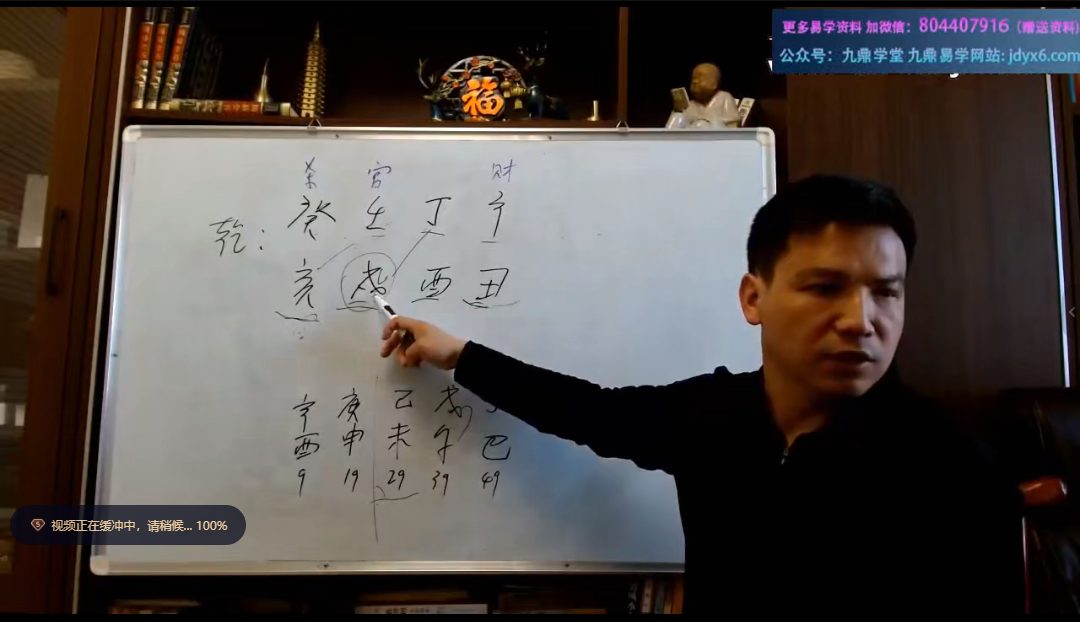 更多易学资料 加微信：804407916（赠送资料）
公众号：九鼎学堂 九鼎易学网站: jdyx6.com
福
杀 官 财
乾：癸 壬 丁 辛
亥 戌 酉 丑
辛 庚 己 戊
酉 申 未 午 巳
9 19 29 39 49
视频正在缓冲中，请稍候... 100%